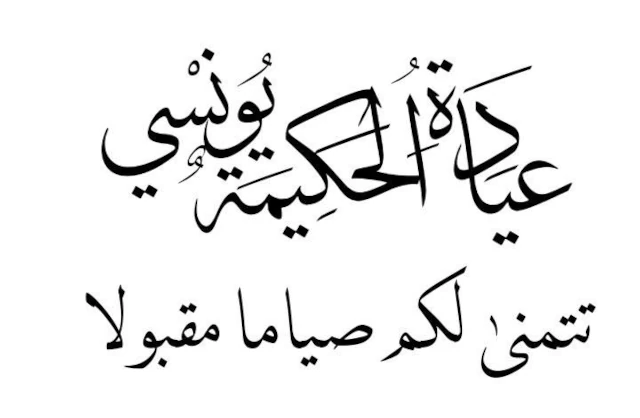 عِيَادَةُ الحَكِيمَةُ يُونْسْي
تتمنى لكم صياما مقبولا